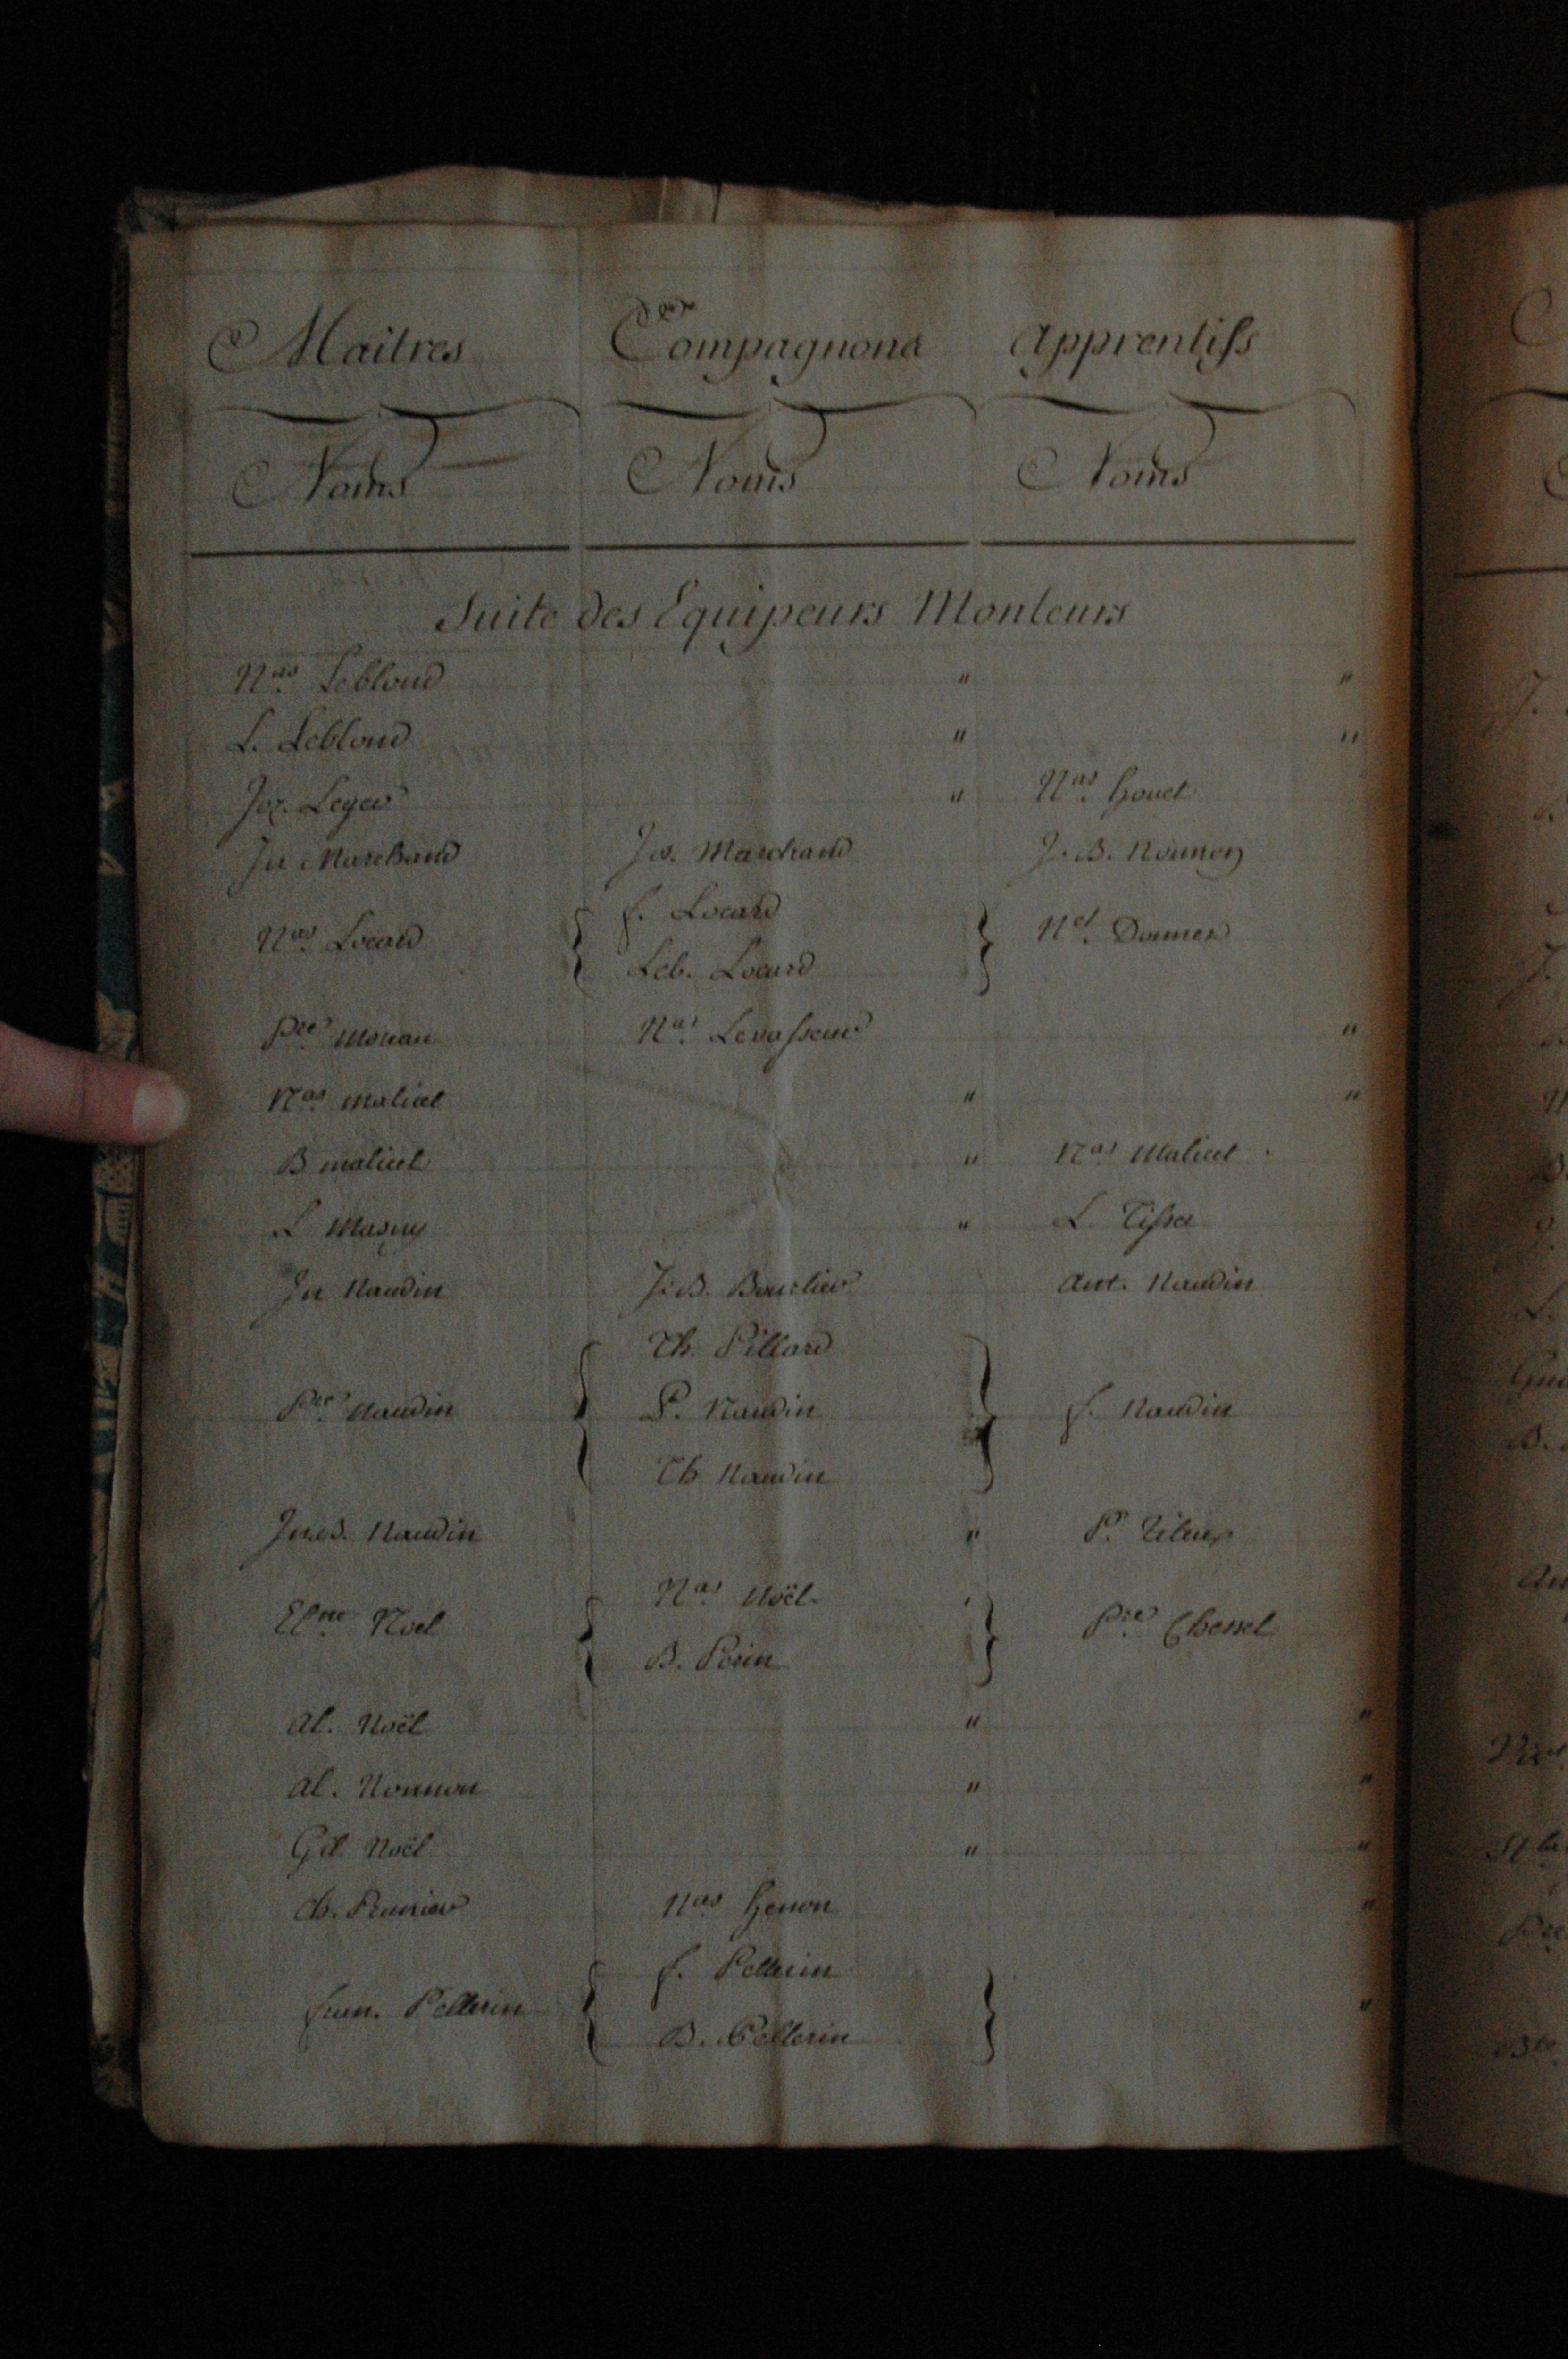 Maitres Compagnons Apprentifs
Noms Noms Noms
Suite des Equipeurs Monteurs
Nas. Leblond " "
L. Leblond " "
Jos. Leger " Nas. Houet
Jn Marchand Jos. Marchand J.B. Nounon
Nas. Locard { f. Locard } Nel. Donner
Seb. Locard
Pre. Moreau Nas. Levasseur "
Nas. malicet " "
B malicet " Nas. Malicet
L Masuy " L Tissier
Jn Naudin J.B. Bourlier Ant. Naudin
Th. Pillard
Pre. Naudin { P. Naudin } f. Naudin
Th Naudin
Jn.B. Naudin " P. Titeux
Etne. Noel { Nas. Noël } Pre. Chessel
B. Perin
Al. Noël " "
Al. Nonnon " "
Gil Noël " "
Ch. Prunier Nas Henon "
fran. Pellerin { f. Pellerin } "
B. Pellerin